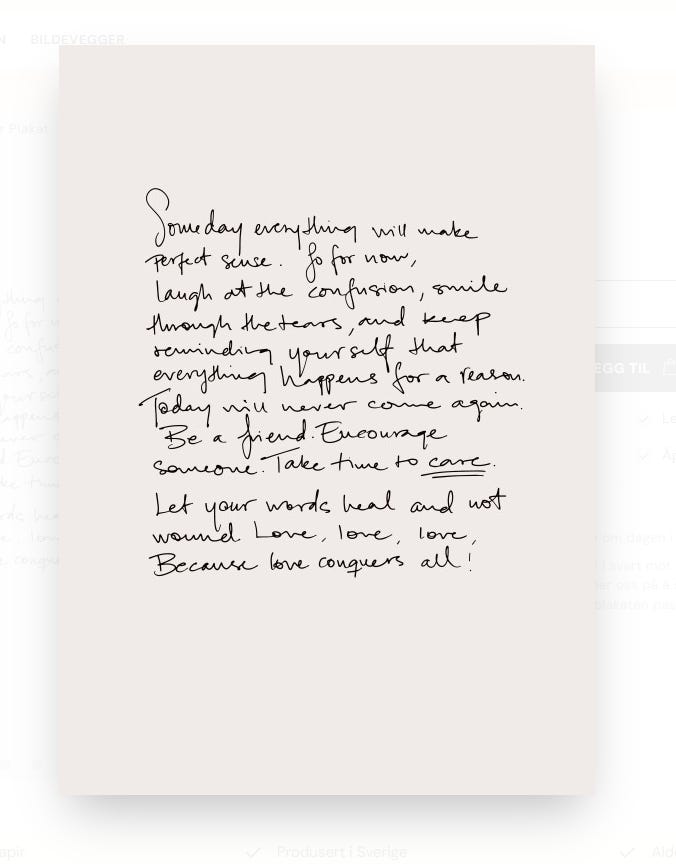 BILDEVEGGER
Plakat
Someday everything will make
perfect sense. So for now,
laugh at the confusion, smile
through the tears, and keep
reminding yourself that
everything happens for a reason.
Today will never come again.
Be a friend. Encourage
someone. Take time to care.
Let your words heal and not
wound. Love, love, love,
Because love conquers all!
EGG TIL
om dagen i
i svart mot
Produsert i Sverige